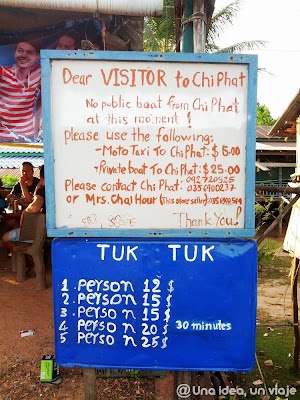 Dear VISITOR to Chi Phat
No public boat from Chi Phat
at this moment!
please use the following:
- Moto Taxi To Chi Phat: $ 5.00
- Private boat To Chi Phat: $ 25.00
092720525
Please contact Chi Phat: 0356900237
or Mrs. Chai Hour (this store seller)
Thank You!
TUK TUK
1. person 12 $
2. perso n 15 $
3. perso n 15 $
4 perso n 20 $ 30 minutes
5 perso n 25 $
@ Una idea, un viaje